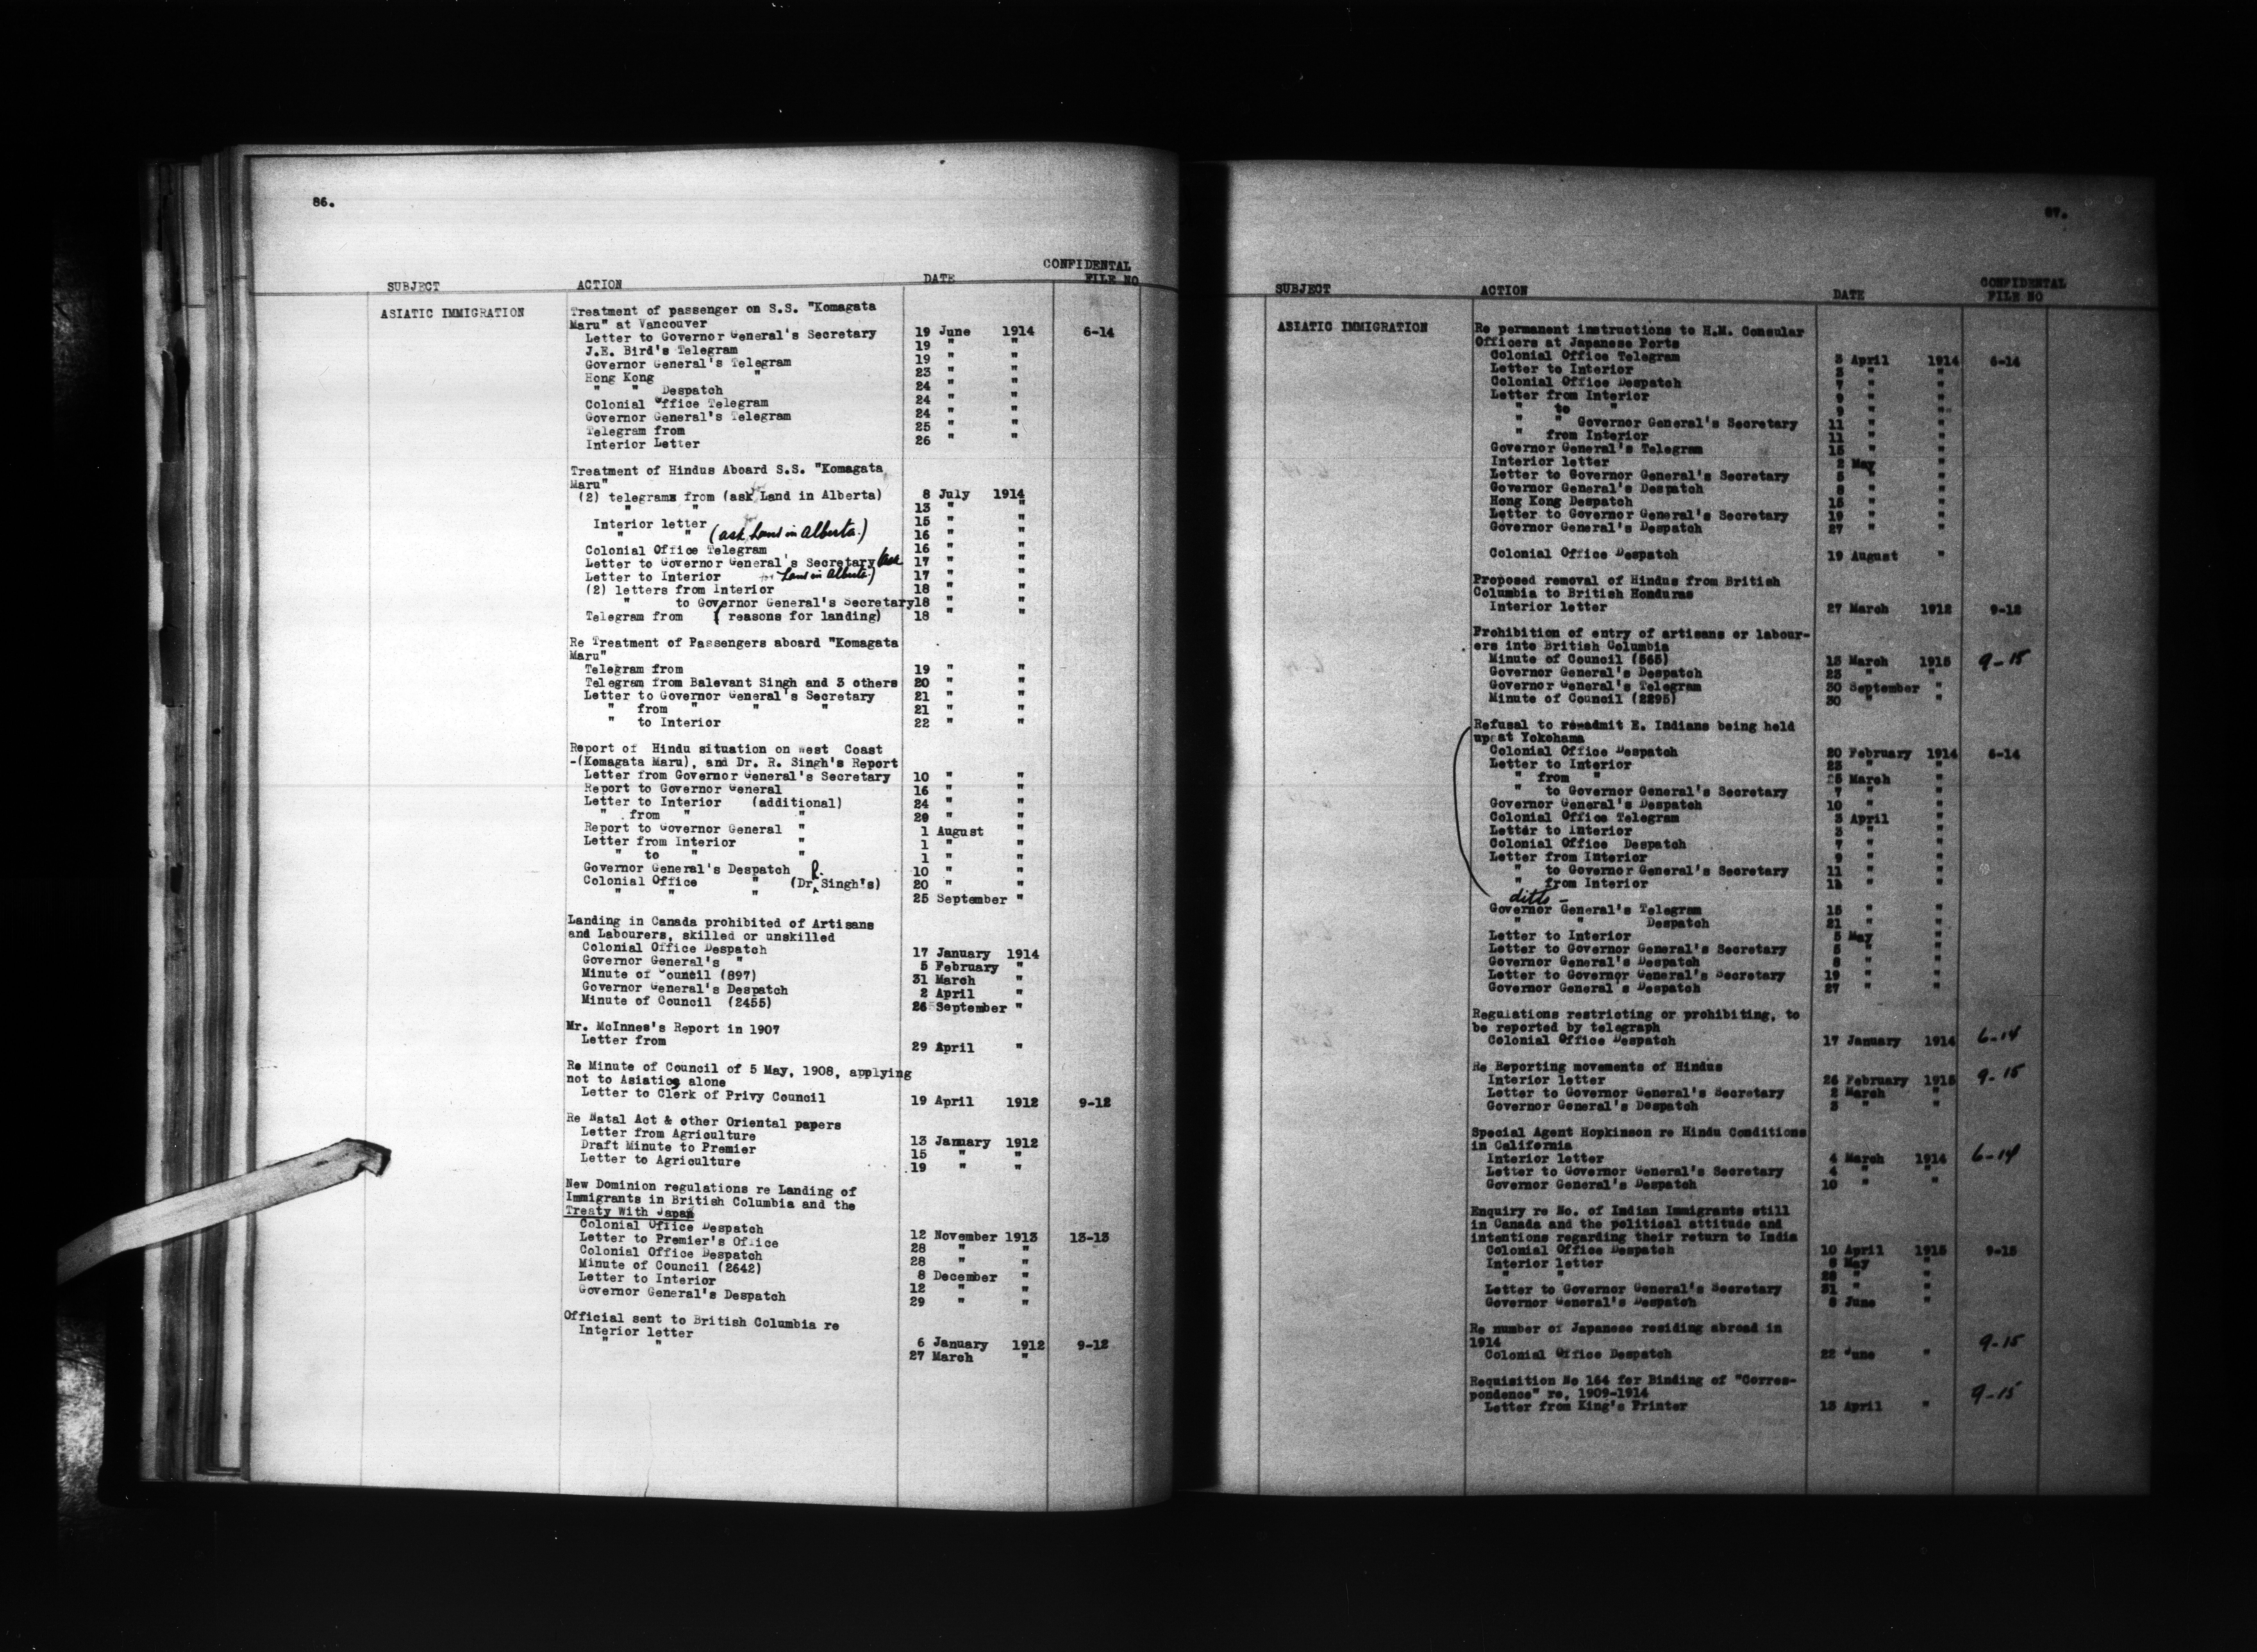 86.
CONFIDENTAL
SUBJECT ACTION DATE FILE NO
ASIATIC IMMIGRATION Treatment of passenger on S.S. "Komagata
Maru" at Vancouver
Letter to Governor General's Secretary 19 June 1914 6-14
J.E. Bird's Telegram 19 " "
Governor General's Telegram 19 " "
Hong Kong " 23 " "
" " Despatch 24 " "
Colonial Office Telegram 24 " "
Governor General's Telegram 24 " "
Telegram from 25 " "
Interior Letter 26 " "
Treatment of Hindus Aboard S.S. "Komagata
Maru"
(2) telegrams from (ask for Land in Alberta) 8 July 1914
" " 13 " "
Interior letter 15 " "
" " (ask for Land in Alberta.) 16 " "
Colonial Office Telegram 16 " "
Letter to Governor General's Secretary (ask 17 " "
Letter to Interior for Land in Alberta.) 17 " "
(2) letters from Interior 18 " "
" to Governor General's Secretary 18 " "
Telegram from ( reasons for landing) 18 " "
Re Treatment of Passengers aboard "Komagata
Maru"
Telegram from 19 " "
Telegram from Balevant Singh and 3 others 20 " "
Letter to Governor General's Secretary 21 " "
" from " " " 21 " "
" to Interior 22 " "
Report of Hindu situation on West Coast
-(Komagata Maru), and Dr. R. Singh's Report
Letter from Governor General's Secretary 10 " "
Report to Governor General 16 " "
Letter to Interior (additional) 24 " "
" from " " 29 " "
Report to Governor General " 1 August "
Letter from Interior " 1 " "
" to " " 1 " "
Governor General's Despatch 10 " "
Colonial Office " (Dr R. Singh's) 20 " "
" " " 25 September "
Landing in Canada prohibited of Artisans
and Labourers, skilled or unskilled
Colonial Office Despatch 17 January 1914
Governor General's " 5 February "
Minute of Council (897) 31 March "
Governor General's Despatch 2 April "
Minute of Council (2455) 26 September "
Mr. McInnes's Report in 1907
Letter from 29 April "
Re Minute of Council of 5 May, 1908, applying
not to Asiatics alone
Letter to Clerk of Privy Council 19 April 1912 9-12
Re Natal Act & other Oriental papers
Letter from Agriculture 13 January 1912
Draft Minute to Premier 15 " "
Letter to Agriculture 19 " "
New Dominion regulations re Landing of
Immigrants in British Columbia and the
Treaty With Japan
Colonial Office Despatch 12 November 1913 13-13
Letter to Premier's Office 28 " "
Colonial Office Despatch 28 " "
Minute of Council (2642) 8 December "
Letter to Interior 12 " "
Governor General's Despatch 29 " "
Official sent to British Columbia re
Interior letter 6 January 1912 9-12
" " 27 March "
87.
CONFIDENTAL
SUBJECT ACTION DATE FILE NO
ASIATIC IMMIGRATION Re permanent instructions to H.M. Consular
Officers at Japanese Ports
Colonial Office Telegram 3 April 1914 6-14
Letter to Interior 3 " "
Colonial Office Despatch 7 " "
Letter from Interior 9 " "
" to " 9 " "
" " Governor General's Secretary 11 " "
" from Interior 11 " "
Governor General's Telegram 15 " "
Interior letter 2 May "
Letter to Governor General's Secretary 5 " "
Governor General's Despatch 8 " "
Hong Kong Despatch 15 " "
Letter to Governor General's Secretary 19 " "
Governor General's Despatch 27 " "
Colonial Office Despatch 19 August "
Proposed removal of Hindus from British
Columbia to British Honduras
Interior letter 27 March 1912 9-12
Prohibition of entry of artisans or labour-
ers into British Columbia
Minute of Council (565) 15 March 1915 9-15
Governor General's Despatch 23 " "
Governor General's Telegram 30 September "
Minute of Council (2295) 30 " "
Refusal to readmit E. Indians being held
up at Yokohama
Colonial Office Despatch 20 February 1914 6-14
Letter to Interior 23 " "
" from " 5 March "
" to Governor General's Secretary 7 " "
Governor General's Despatch 10 " "
Colonial Office Telegram 3 April "
Letter to Interior 3 " "
Colonial Office Despatch 7 " "
Letter from Interior 9 " "
" to Governor General's Secretary 11 " "
" from Interior 11 " "
ditto -
Governor General's Telegram 15 " "
" " Despatch 21 " "
Letter to Interior 5 May "
Letter to Governor General's Secretary 5 " "
Governor General's Despatch 8 " "
Letter to Governor General's Secretary 19 " "
Governor General's Despatch 27 " "
Regulations restricting or prohibiting, to
be reported by telegraph
Colonial Office Despatch 17 January 1914 6-14
Re Reporting movements of Hindus
Interior letter 26 February 1915 9-15
Letter to Governor General's Secretary 2 March "
Governor General's Despatch 3 " "
Special Agent Hopkinson re Hindu Conditions
in California
Interior letter 4 March 1914 6-14
Letter to Governor General's Secretary 4 " "
Governor General's Despatch 10 " "
Enquiry re No. of Indian Immigrants still
in Canada and the political attitude and
intentions regarding their return to India
Colonial Office Despatch 10 April 1915 9-15
Interior letter 6 May "
" " 28 " "
Letter to Governor General's Secretary 31 " "
Governor General's Despatch 8 June "
Re number of Japanese residing abroad in
1914 9-15
Colonial Office Despatch 22 June "
Requisition No 164 for Binding of "Corres-
pondence" re, 1909-1914 9-15
Letter from King's Printer 13 April "